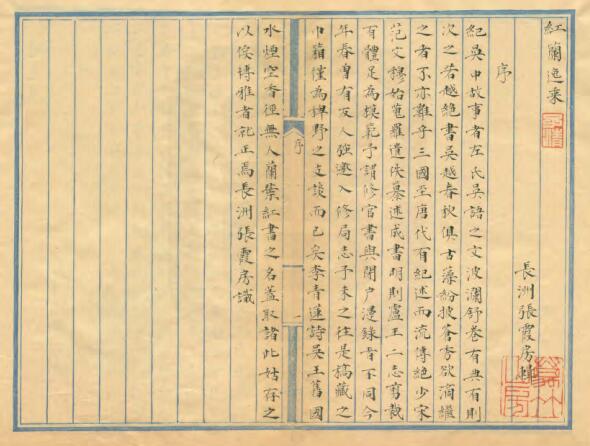 紅蘭逸乘
長洲張霞房輯
序
紀吳中故事者左氏吳語之文波瀾舒卷有典有則
次之若越絕書吳越春秋俱古藻紛披蒼秀欲滴繼
之者不亦難乎三國至唐代有紀述而流傳絕少宋
范文穆始蒐羅遺佚纂述成書明則盧王二志剪裁
有體足為模範予謂修官書與閉户漫錄者不同今
年春曾有友人強邀入修局志予未之往是稿藏之
巾箱僅為稗野之支談而已矣李青蓮詩吳王舊國
水煙空香徑無人蘭葉紅書之名蓋取諸此姑存之
以俟博雅者就正焉長洲張霞房識
序
一